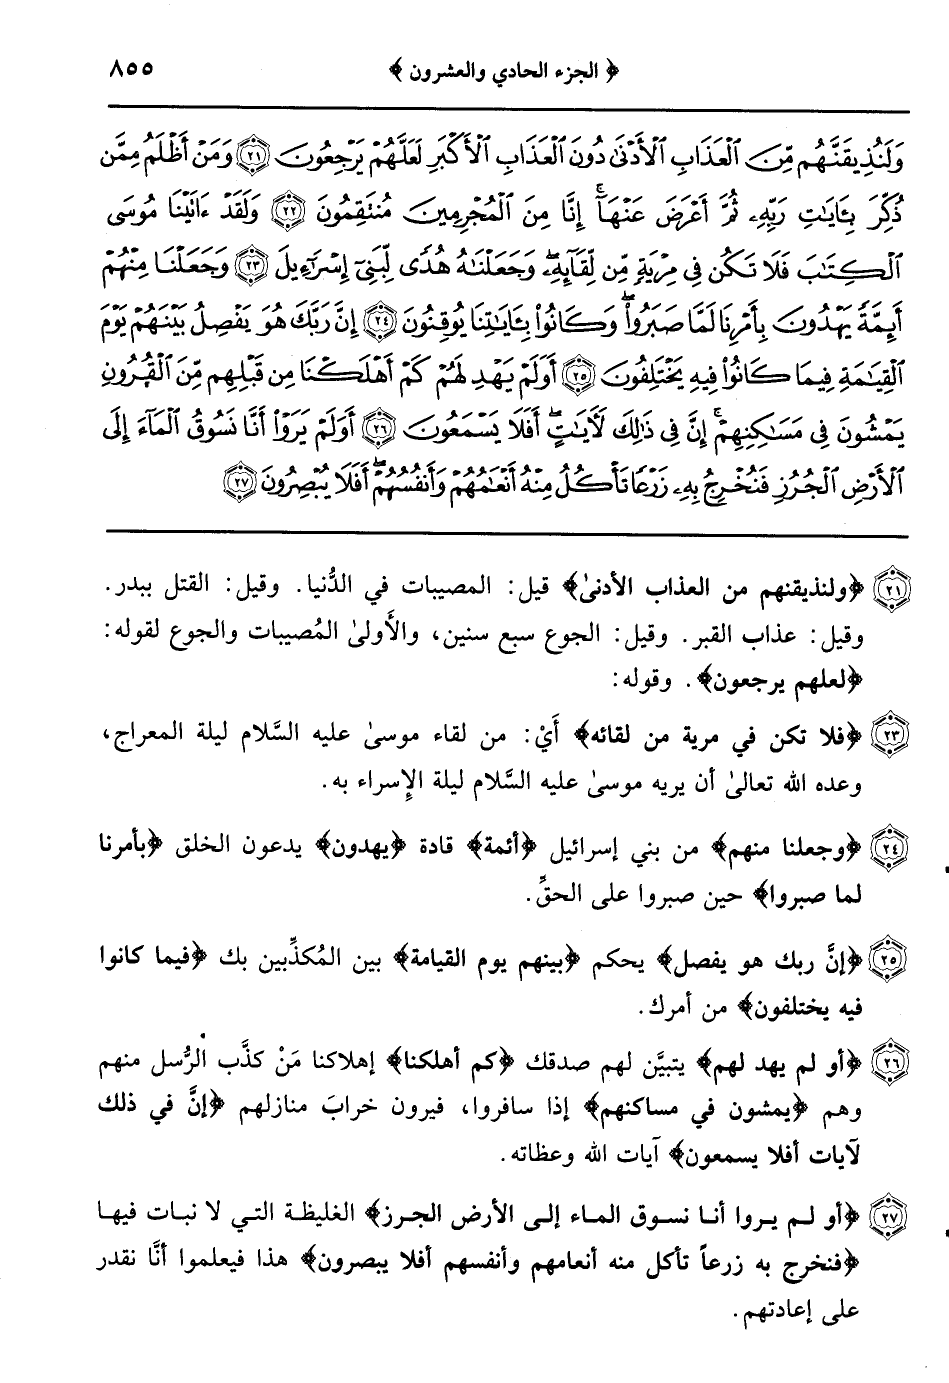 ﴿ الجزء الحادي والعشرون ﴾ ٨٥٥
وَلَنُذِيقَنَّهُم مِّنَ ٱلْعَذَابِ ٱلْأَدْنَىٰ دُونَ ٱلْعَذَابِ ٱلْأَكْبَرِ لَعَلَّهُمْ يَرْجِعُونَ ٢١ وَمَنْ أَظْلَمُ مِمَّن
ذُكِّرَ بِـَٔايَٰتِ رَبِّهِۦ ثُمَّ أَعْرَضَ عَنْهَآ ۚ إِنَّا مِنَ ٱلْمُجْرِمِينَ مُنتَقِمُونَ ٢٢ وَلَقَدْ ءَاتَيْنَا مُوسَى
ٱلْكِتَٰبَ فَلَا تَكُن فِى مِرْيَةٍ مِّن لِّقَآئِهِۦ ۖ وَجَعَلْنَٰهُ هُدًى لِّبَنِىٓ إِسْرَٰٓءِيلَ ٢٣ وَجَعَلْنَا مِنْهُمْ
أَئِمَّةً يَهْدُونَ بِأَمْرِنَا لَمَّا صَبَرُوا۟ ۖ وَكَانُوا۟ بِـَٔايَٰتِنَا يُوقِنُونَ ٢٤ إِنَّ رَبَّكَ هُوَ يَفْصِلُ بَيْنَهُمْ يَوْمَ
ٱلْقِيَٰمَةِ فِيمَا كَانُوا۟ فِيهِ يَخْتَلِفُونَ ٢٥ أَوَلَمْ يَهْدِ لَهُمْ كَمْ أَهْلَكْنَا مِن قَبْلِهِم مِّنَ ٱلْقُرُونِ
يَمْشُونَ فِى مَسَٰكِنِهِمْ ۚ إِنَّ فِى ذَٰلِكَ لَءَايَٰتٍ ۖ أَفَلَا يَسْمَعُونَ ٢٦ أَوَلَمْ يَرَوْا۟ أَنَّا نَسُوقُ ٱلْمَآءَ إِلَى
ٱلْأَرْضِ ٱلْجُرُزِ فَنُخْرِجُ بِهِۦ زَرْعًا تَأْكُلُ مِنْهُ أَنْعَٰمُهُمْ وَأَنفُسُهُمْ ۖ أَفَلَا يُبْصِرُونَ ٢٧
٢١ ﴿ولنذيقنهم من العذاب الأدنىٰ﴾ قيل: المصيبات في الدُّنيا. وقيل: القتل ببدر.
وقيل: عذاب القبر. وقيل: الجوع سبع سنين، والأَولىٰ المُصيبات والجوع لقوله:
﴿لعلهم يرجعون﴾. وقوله:
٢٣ ﴿فلا تكن في مرية من لقائه﴾ أَيْ: من لقاء موسىٰ عليه السَّلام ليلة المعراج،
وعده الله تعالىٰ أن يريه موسىٰ عليه السَّلام ليلة الإِسراء به.
٢٤ ﴿وجعلنا منهم﴾ من بني إسرائيل ﴿أئمة﴾ قادة ﴿يهدون﴾ يدعون الخلق ﴿بأمرنا
لما صبروا﴾ حين صبروا على الحقِّ.
٢٥ ﴿إنَّ ربك هو يفصل﴾ يحكم ﴿بينهم يوم القيامة﴾ بين المُكذِّبين بك ﴿فيما كانوا
فيه يختلفون﴾ من أمرك.
٢٦ ﴿أو لم يهد لهم﴾ يتبيَّن لهم صدقك ﴿كم أهلكنا﴾ إهلاكنا مَنْ كذَّب الرُّسل منهم
وهم ﴿يمشون في مساكنهم﴾ إذا سافروا، فيرون خرابَ منازلهم ﴿إنَّ في ذلك
لآيات أفلا يسمعون﴾ آيات الله وعظاته.
٢٧ ﴿أو لم يروا أنا نسوق الماء إلى الأرض الجرز﴾ الغليظة التي لا نبات فيها
﴿فنخرج به زرعاً تأكل منه أنعامهم وأنفسهم أفلا يبصرون﴾ هذا فيعلموا أنَّا نقدر
على إعادتهم.